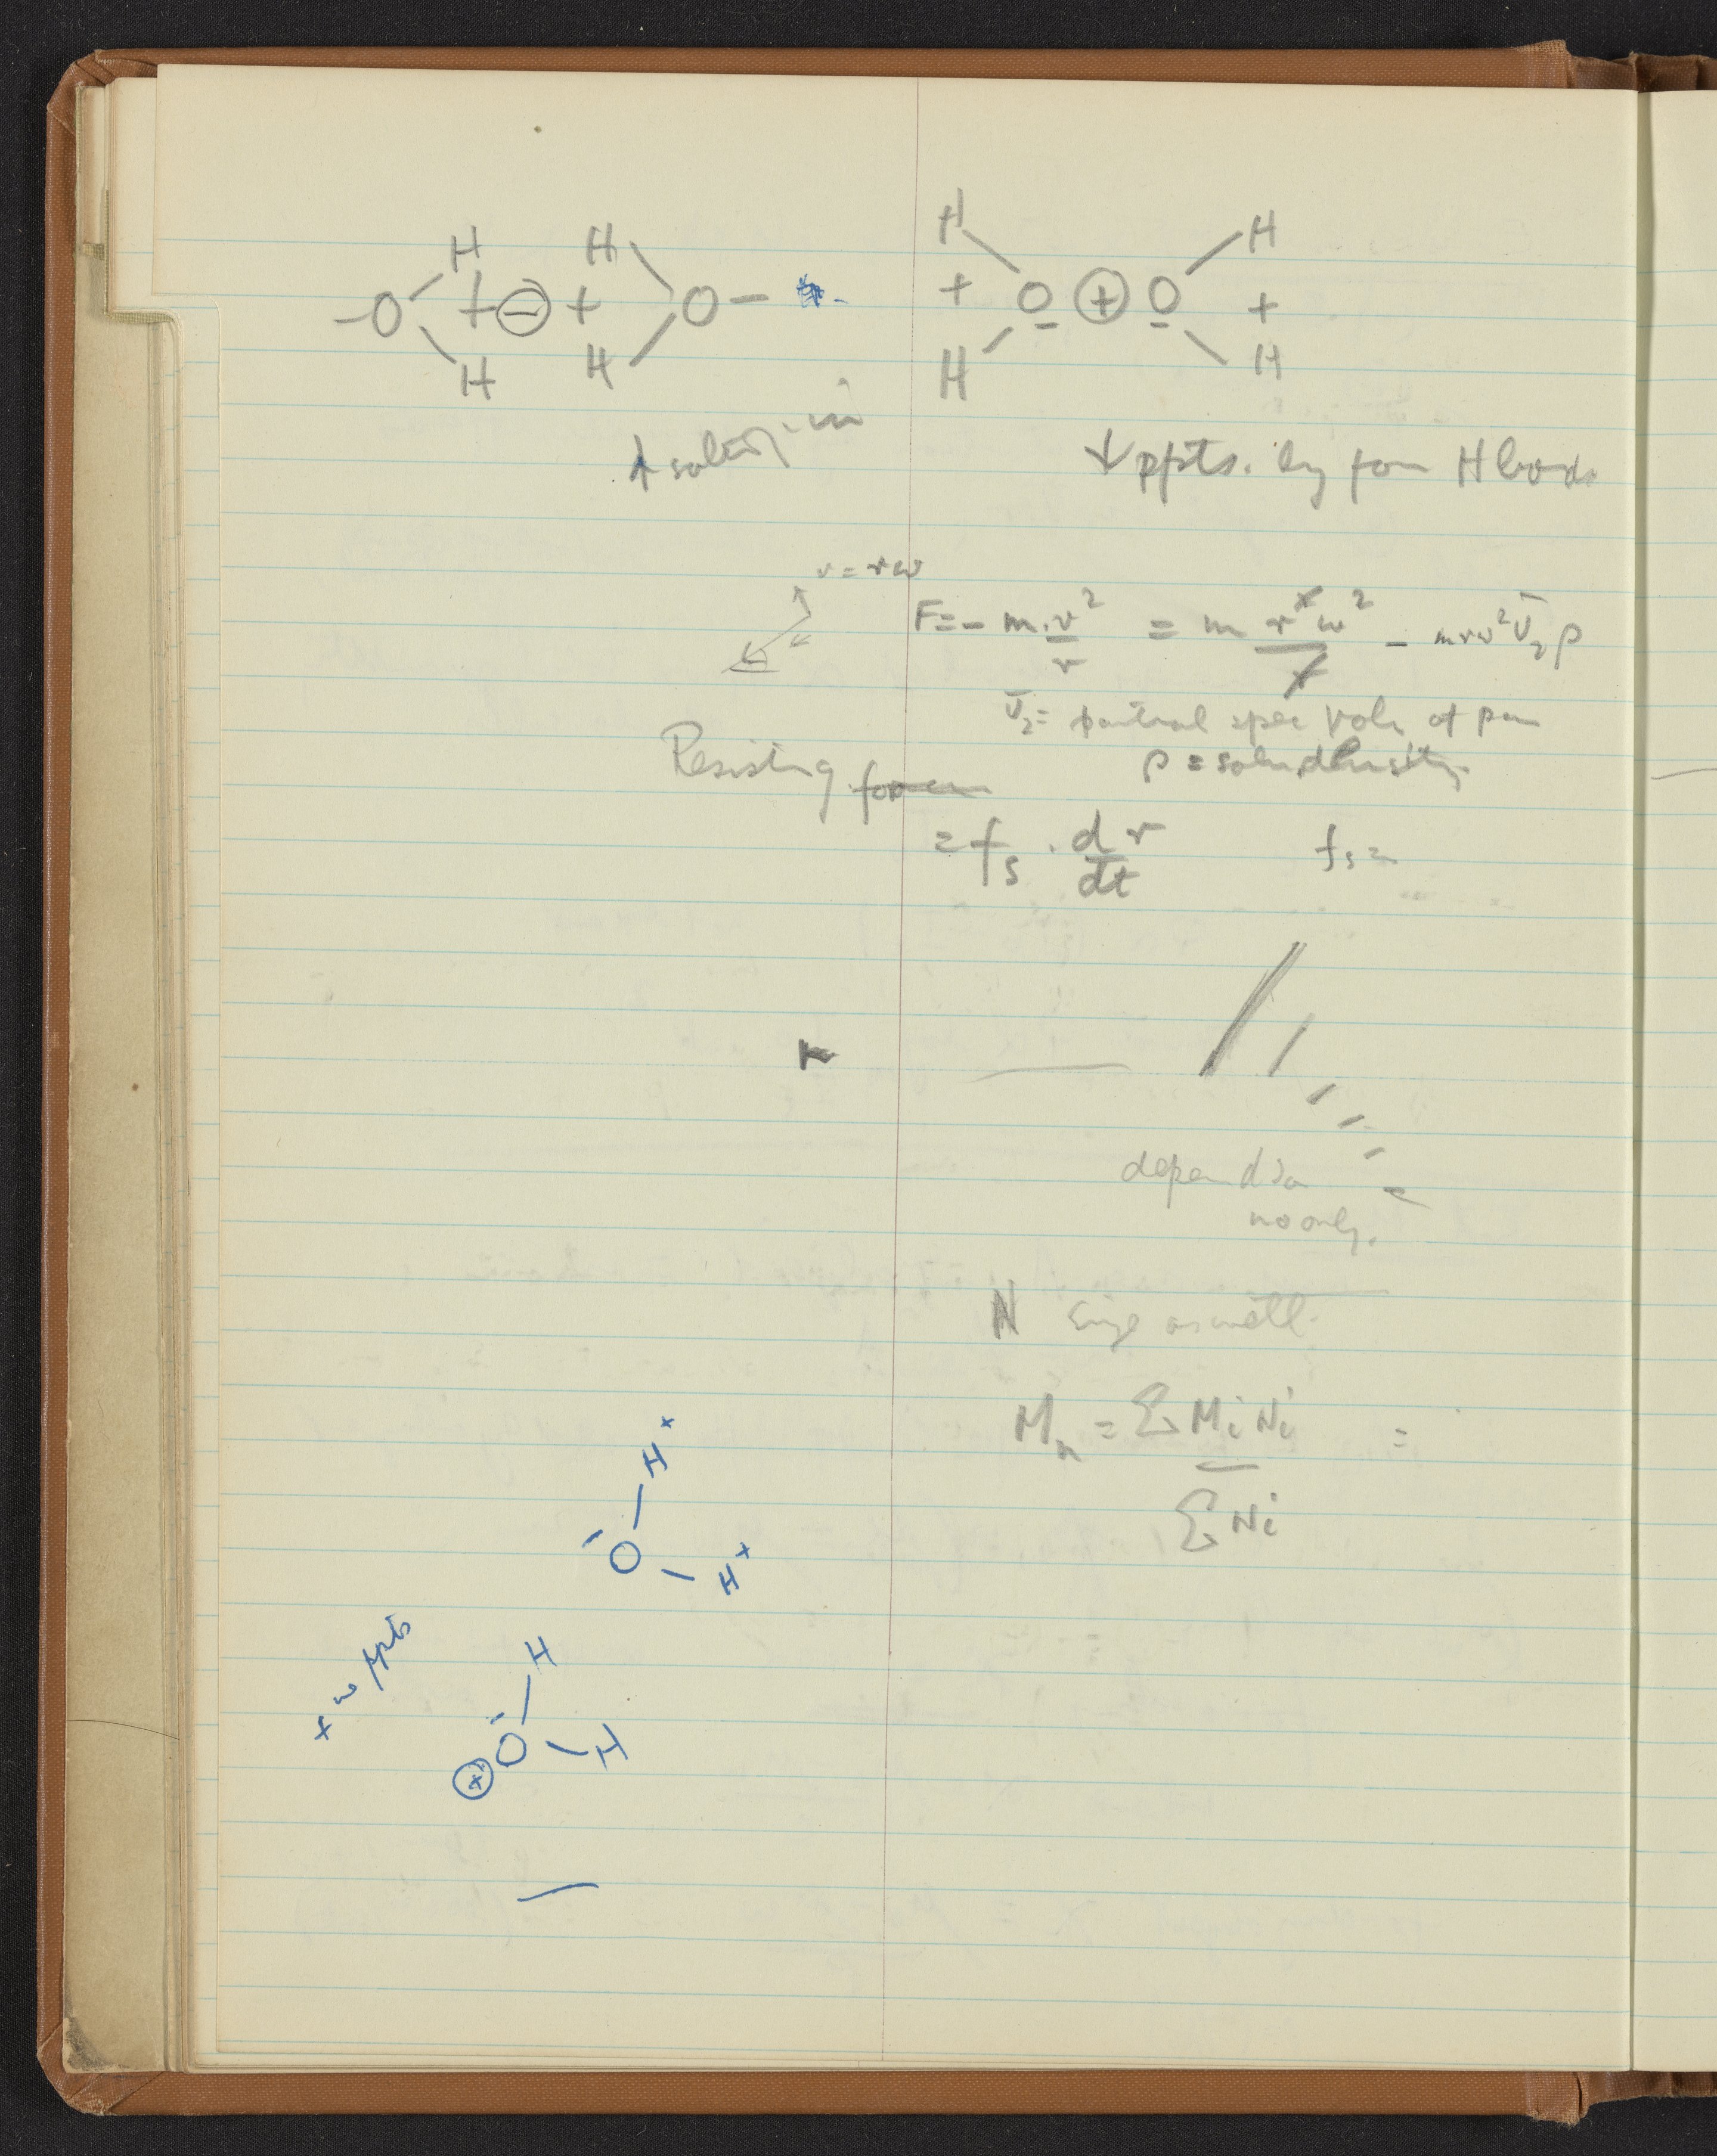 H H H H
-O + ⊖ + O - + O ⊕ O +
H H H H
↑ ↓ ppts. by form H bonds
v = rω
F = - m . v² / r = m r² ω² / r - m r ω² V̄₂ ρ
V̄₂ = partial spec vol. of
ρ = soln density
Resisting force
= fₛ . dr / dt fₛ =
no only.
N as well.
Mₙ = Σ Mi Ni / Σ Ni =
H⁺
- O - H⁺
H
⊕ O - H